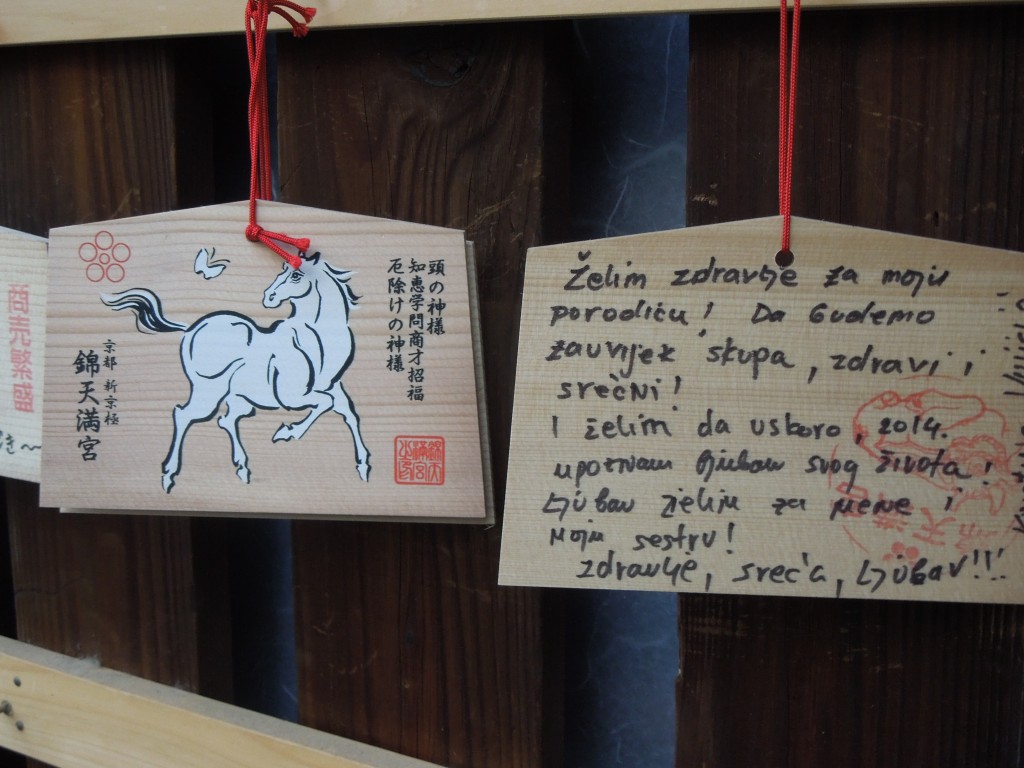 商売繁盛
頭の神様
知恵学問商才招福
厄除けの神様
京都 新京極
錦天満宮
Želim zdravlje za moju
porodicu! Da budemo
zauvijek skupa, zdravi i
srećni!
I želim da uskoro, 2014.
upoznam ljubav svog života!
Ljubav želim za mene i
moju sestru!
Zdravlje, sreća, Ljubav!!!